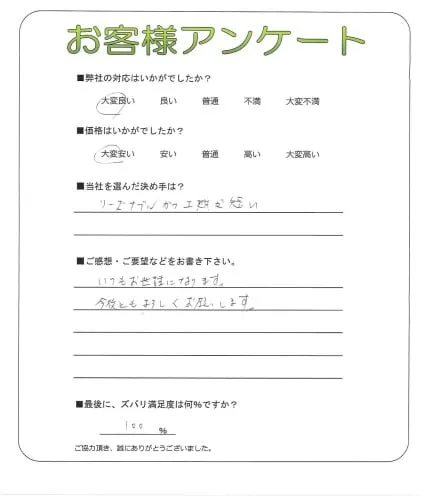 お客様アンケート
■弊社の対応はいかがでしたか?
大変良い 良い 普通 不満 大変不満
■価格はいかがでしたか?
大変安い 安い 普通 高い 大変高い
■当社を選んだ決め手は?
リーズナブルかつ工期が短い
■ご感想・ご要望などをお書き下さい。
いつもお世話になります。
今後ともよろしくお願いします。
■最後に、ズバリ満足度は何%ですか?
100 %
ご協力頂き、誠にありがとうございました。